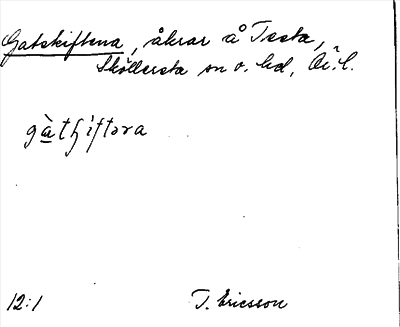 Gatskiftena, åkrar å Tssta,
Sköllersta sn o. hd, Ör. l.
gàtʃìftəra
12:1 T. Ericsson